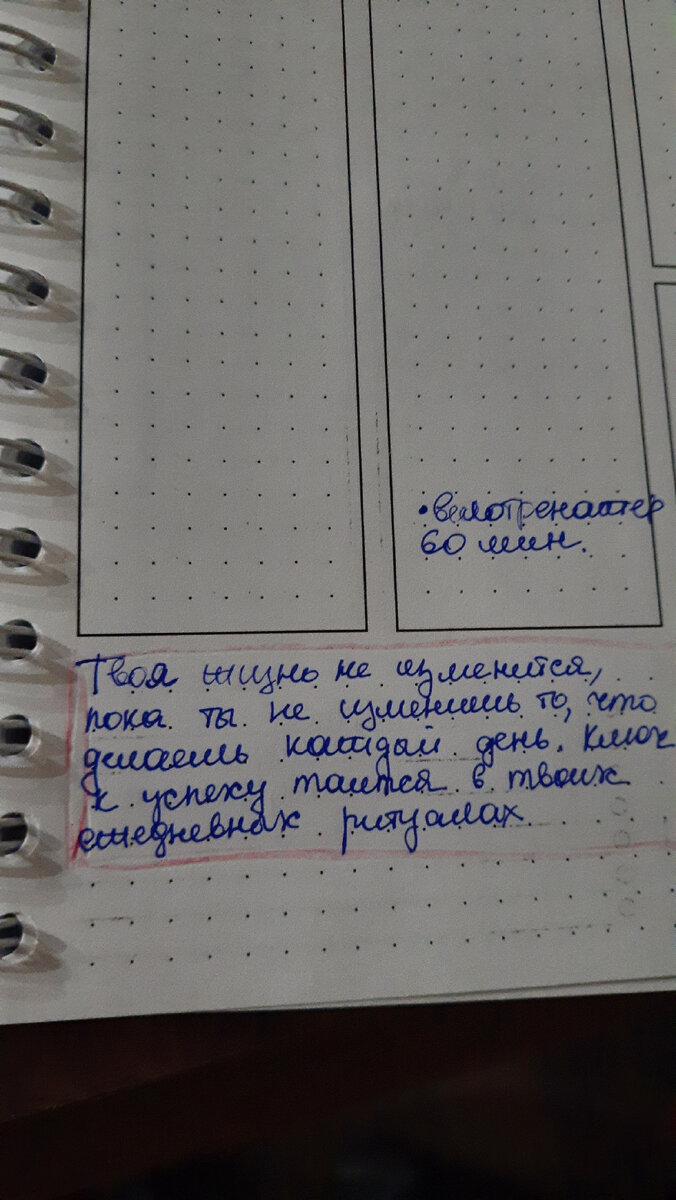 • велотренажер
60 мин.
Твоя жизнь не изменится,
пока ты не изменишь то, что
делаешь каждый день. Ключ
к успеху таится в твоих
ежедневных ритуалах